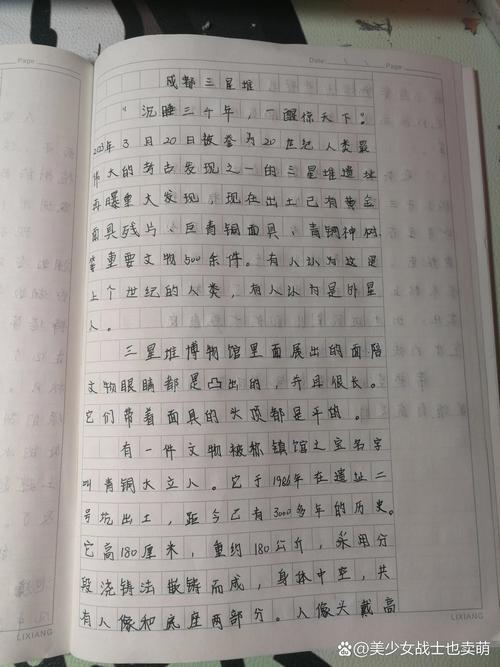 Page
Date:
Page
成都三星堆
“沉睡三千年，一醒惊天下”。
2021年3月20日被誉为20世纪人类最
伟大的考古发现之一的三星堆遗址
再曝重大发现，现在出土已有黄金
面具残片、巨青铜面具、青铜神树
等重要文物500余件。有人认为这是
上个世纪的人类，有人认为是外星
人。
三星堆博物馆里面展出的面陪
文物眼睛都是凸出的，并且很长。
它们带着面具的头顶都是平的。
有一件文物被称镇馆之宝名字
叫青铜大立人。它于1986年在遗址二
号坑出土，距今已有3000多年的历史。
它高180厘米，重约180公斤，采用分
段浇铸法嵌铸而成，身体中空，共
有人像和底座两部分。人像头戴高
LIXIANG
LIXIANG
@美少女战士也卖萌